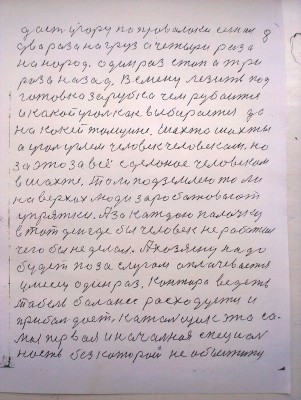 дает у гору по проволоки сигнал 8
два раза на груз а четыри раза
на народ. один раз стоп а три
раза назад. В смену лезить под
готовка зарубка чем рубается
и какой угол как выберается да
на какей толщине. Шахта шахты
а угол углем человек человекам. но
за это за всё сделоное человекам
в шахте. То ли под землею то ли
на верхах люди заработовают
упряжки. А за каждою палочку
в тот день где бы человек не работал
чего бы не делал. А хозяину надо
будет по заслугам оплачевается
умесц один раз. Контора ведеть
табель баланес расходуеть и
прибыл дает, Каталщик это са-
мая первая и началная специал
ность без которой не обойтить